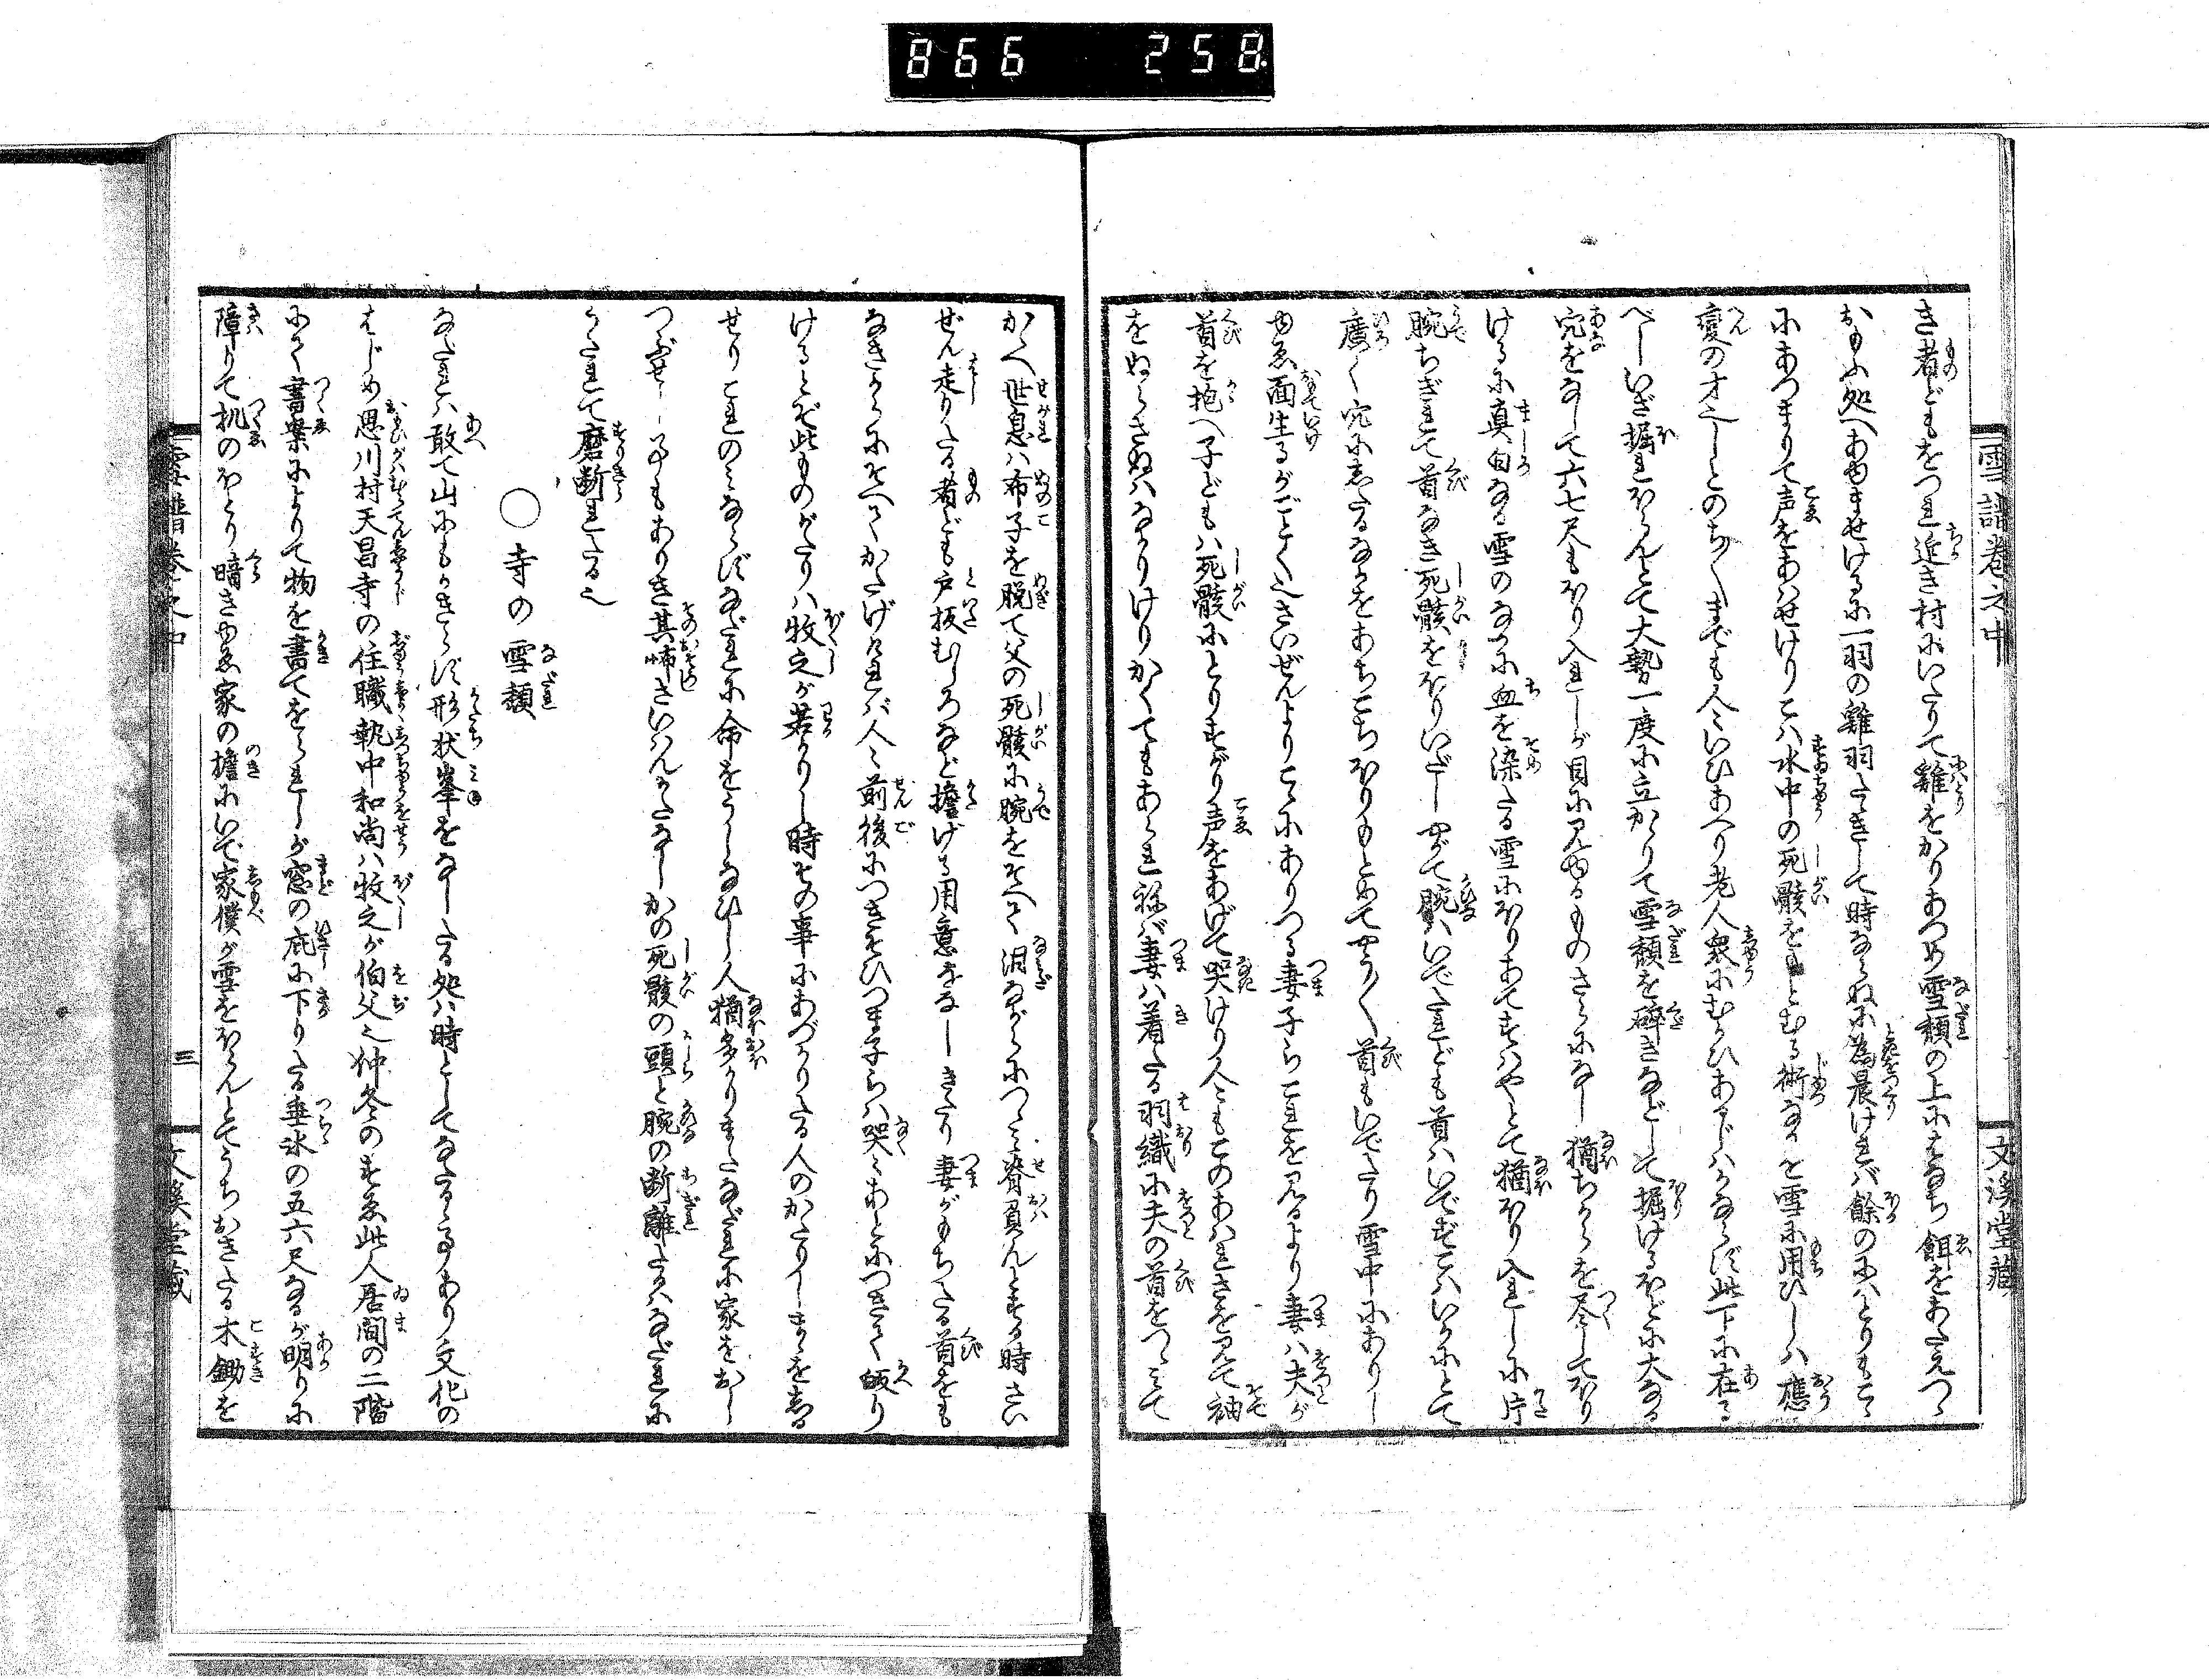 866 258.
雪譜巻之中
文溪堂藏
き者どもをつれ近き村にいたりて雞をかりあつめ雪頽の上にはなち餌をあたへつゝ
おもふ処へあゆませけるに一羽の雞羽たゝきして時ならぬに為晨ければ餘のにはとりもこゝ
にあつまりて声をあはせけりこは水中の死骸をもとむる術なるを雪に用ひしは應
變の才也しとのち〳〵までも人々いひあへり老人衆にむかひあるじはかならず此下に在る
べしいざ掘れほらんとて大勢一度に立かゝりて雪頽を碎きなどして掘けるほどに大なる
穴をなして六七尺もほり入れしが目に見ゆるものさらになし猶ちからを尽してほり
けるに真白なる雪のなかに血を染たる雪にほりあてすはやとて猶ほり入れしに片
腕ちぎれて首なき死骸をほりいだしやがて腕はいでたれども首はいでずこはいかにとて
廣く穴にしたるなかをあちこちほりもとめてやう〳〵首もいでたり雪中にありし
ゆゑ面生るがごとく也さいぜんよりこゝにありつる妻子らこれを見るより妻は夫が
首を抱へ子どもは死骸にとりすがり声をあげて哭けり人々もこのあはれさを見て袖
をぬらさぬはなかりけりかくてもあられねば妻は着たる羽織に夫の首をつゝみて
かゝへ世息は布子を脱て父の死骸に腕をそへて泪ながらにつゝみ脊負んとする時さい
ぜん走りたる者ども戸板むしろなど擔げる用意をなしきたり妻がもちたる首をも
なきからにそへてかたげければ人々前後につきそひつま子らは哭々あとにつきて皈り
けるとぞ此ものがたりは牧之が若かりし時その事にあづかりたる人のかたりしまゝをしる
せりこれのみならずなだれに命をうしなひし人猶多かりまたなだれに家をおし
つぶせし事もありき其怖さいはんかたなしかの死骸の頭と腕の断離たるはなだれに
うたれて磨断れたる也
○寺の雪頽
なだれは敢て山にもかぎらず形状峯をなしたる処は時としてなだるゝ事あり文化の
はじめ思川村天昌寺の住職執中和尚は牧之が伯父也仲冬のすゑ此人居間の二階
にて書案によりて物を書てをられしが窓の庇に下りたる垂氷の五六尺なるが明りに
障りて机のほとり暗きゆゑ家の擔にいで家僕が雪をほらんとてうちおきたる木鋤を
雪譜巻之中
三
文溪堂藏